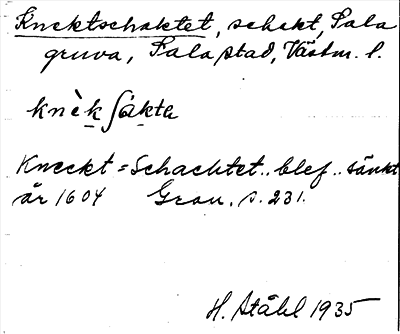 Knektschaktet, schakt, Sala
gruva, Sala stad, Västm. l.
knèkʃakta
Kneckt=Schachtet.. blef.. sänkt
år 1604 Grau, s. 231.
H. Ståhl 1935